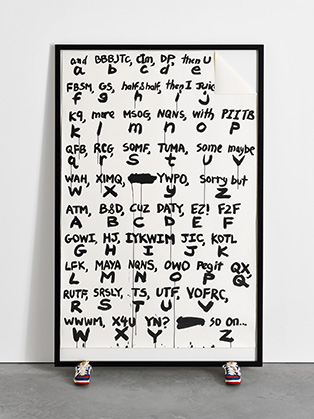 and BBBJTC, CIM, DP, then U
a b c d e
FBSM, GS, half & half, then I Juic
f g h i j
K9, more MSOG, NQNS, with PIITB
k l m n o P
QFB, RCG SOMF, TUMA, some maybe
q r S t u V
WAH, XIMQ, YWPO, sorry but
W X y Z
ATM, B&D, CUZ DATY, EZ! F2F
A B C D E F
GOWI, HJ, IYKWIM JIC, KOTL
G H I J K
LFK, MAYA NQNS, OWO Pegit QX
L M N O P Q
RUTF, SRSLY, TS, UTF, VOFRC,
R S T U V
WWWM, X4U YN? so on...
W X Y Z